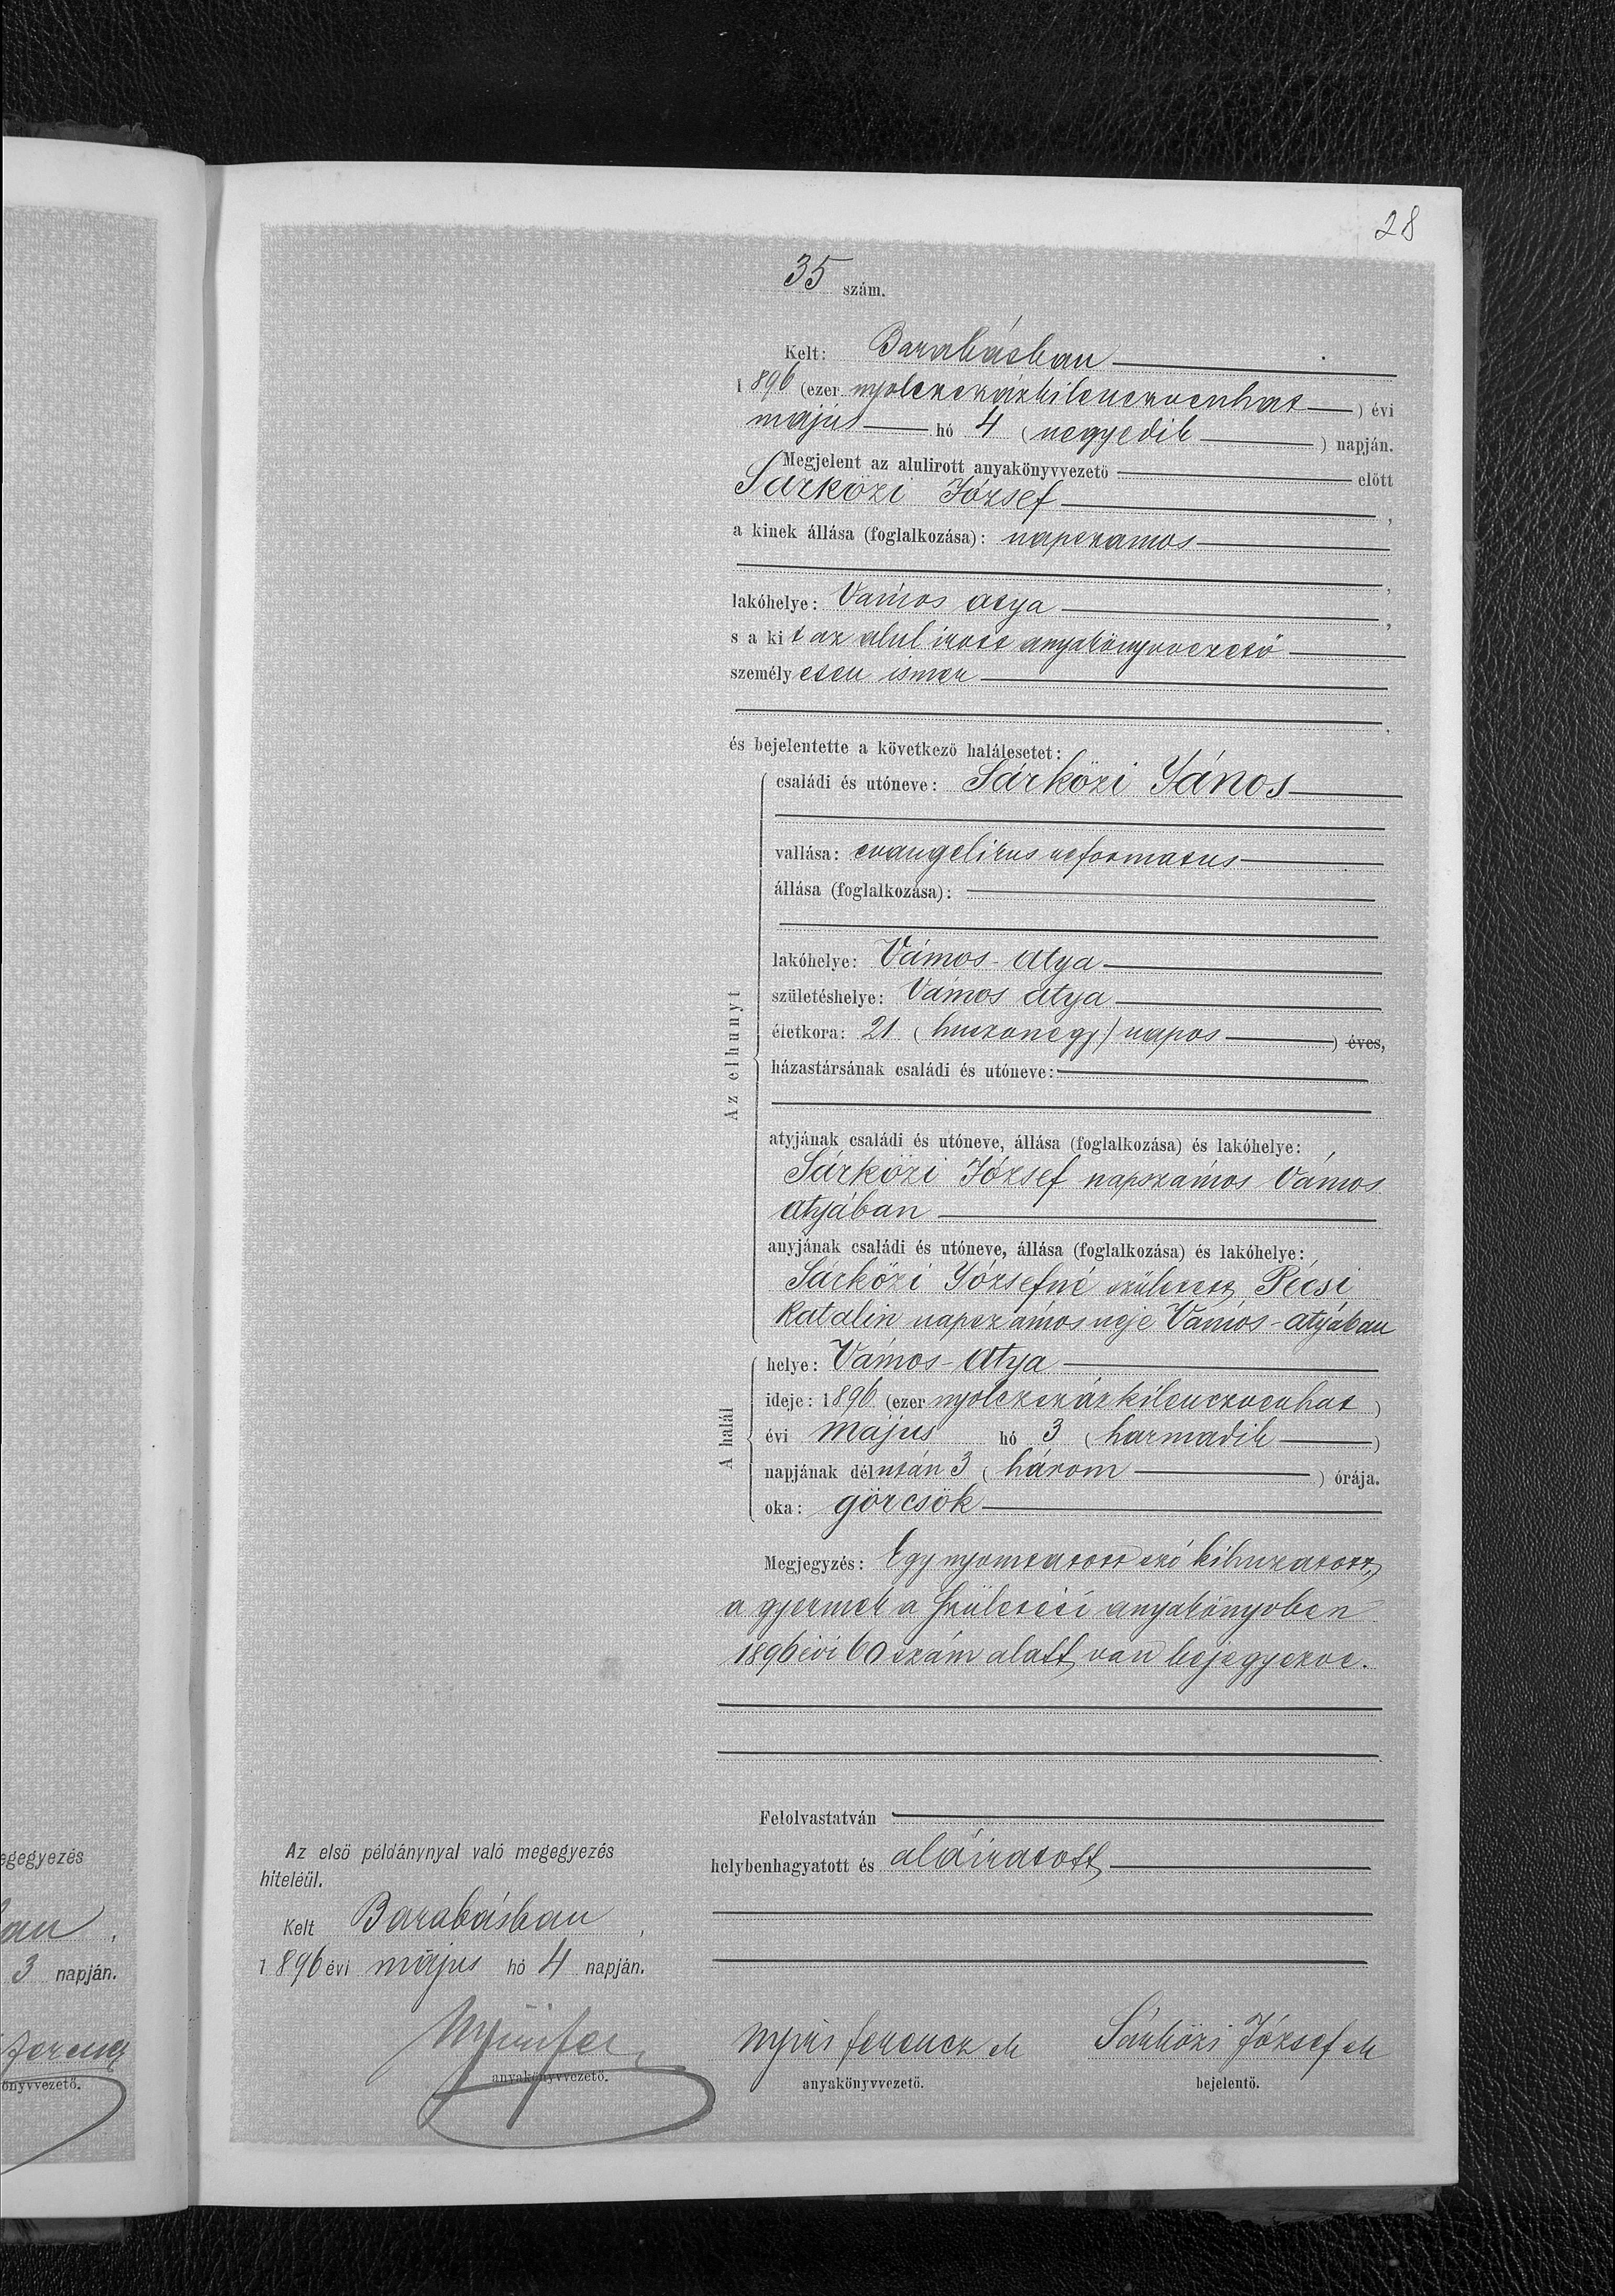 28
35 szám.
Kelt: Barabásban
1896 (ezer nyolczszázkilenczvenhat) évi
május hó 4 (negyedik) napján.
Megjelent az alulirott anyakönyvvezető előtt
Sárközi József,
a kinek állása (foglalkozása): napszamos
lakóhelye: Vámos atya,
s a kit az alul irott anyakönyvvezető
személyesen ismer
és bejelentette a következő halálesetet:
Az elhunyt
családi és utóneve: Sárközi János
vallása: evangelikus reformatus
állása (foglalkozása):
lakóhelye: Vámos-Atya
születéshelye: Vámos atya
életkora: 21 (huszonegy) napos) éves,
házastársának családi és utóneve:
atyjának családi és utóneve, állása (foglalkozása) és lakóhelye:
Sárközi József napszámos Vámos
atyában
anyjának családi és utóneve, állása (foglalkozása) és lakóhelye:
Sárközi Józsefné született Pécsi
Katalin napszámos neje Vámos-atyában
A halál
helye: Vámos-Atya
ideje: 1896 (ezer nyolczszázkilenczvenhat)
évi május hó 3 (harmadik)
napjának délután 3 (három) órája.
oka: görcsök
Megjegyzés: Egy nyomtatott szó kihuzatott,
a gyermek a Születési anyakönyvben
1896 évi 60 szám alatt van bejegyezve.
Felolvastatván
helybenhagyatott és aláiratott
Az első példánynyal való megegyezés
hiteléül.
Kelt Barabásban,
1896 évi május hó 4 napján.
anyakönyvvezető.
Nyiri Ferencz sk
anyakönyvvezető.
Sárközi József sk
bejelentő.
egegyezés
an,
3 napján.
Ferencz
önyvvezető.